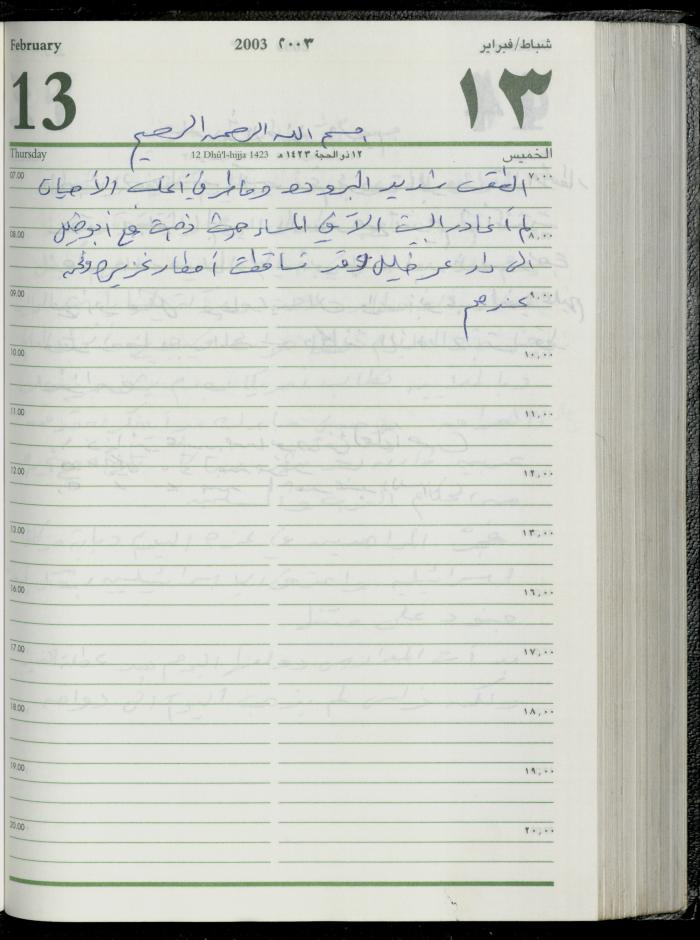 February 2003 ٢٠٠٣ شباط/فبراير
13 ١٣
بسم الله الرحمن الرحيم
Thursday 12 Dhû'l-hijja 1423 ١٢ ذو الحجة ١٤٢٣هـ الخميس
07.00 ٧,٠٠
الطقس شديد البروده وماطر في أغلب الأحيان
لم أغادر البيت الا في المساء حيث ذهبت مع أبو خليل
08.00 ٨,٠٠
الى دار عمر خليل وقد تساقطت أمطار غزيره ونحن
09.00 ٩,٠٠
عندهم
10.00 ١٠,٠٠
11.00 ١١,٠٠
12.00 ١٢,٠٠
13.00 ١٣,٠٠
16.00 ١٦,٠٠
17.00 ١٧,٠٠
18.00 ١٨,٠٠
19.00 ١٩,٠٠
20.00 ٢٠,٠٠